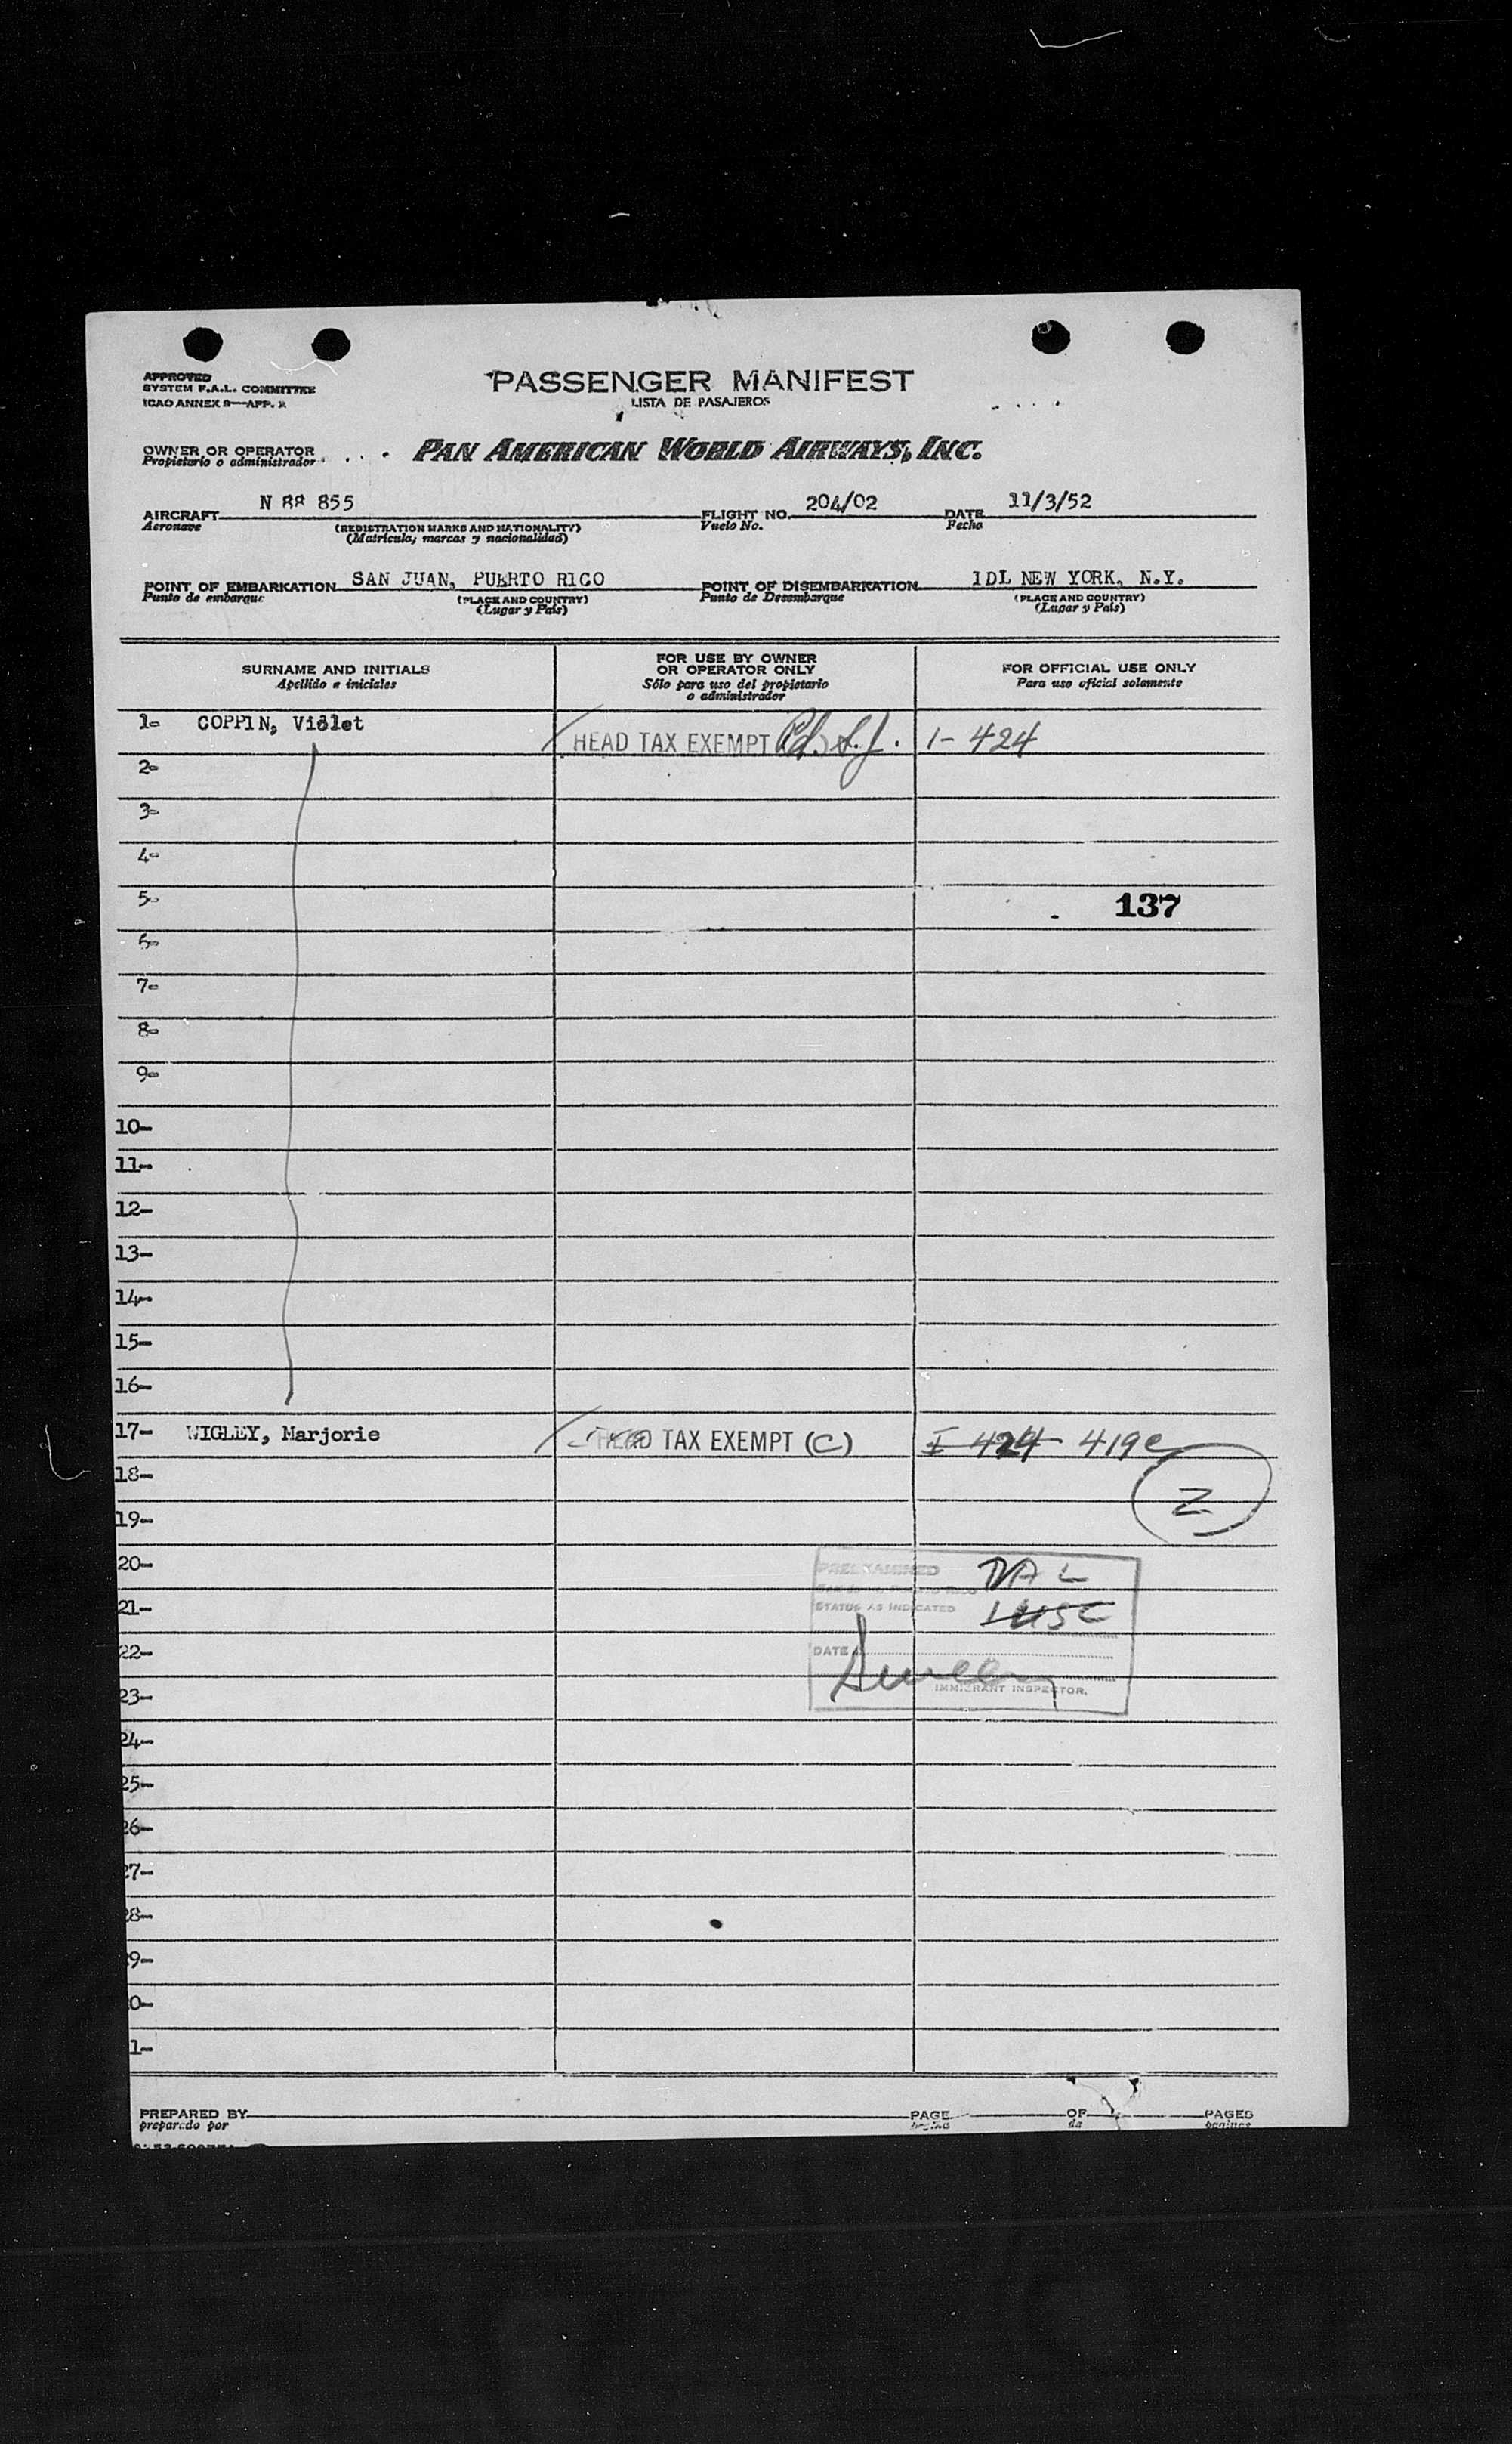 APPROVED
SYSTEM F.A.L. COMMITTEE
ICAO ANNEX 9—APP. 2
PASSENGER MANIFEST
LISTA DE PASAJEROS
OWNER OR OPERATOR
Propietario o administrador
PAN AMERICAN WORLD AIRWAYS, INC.
AIRCRAFT N 88 855 FLIGHT NO. 204/02 DATE 11/3/52
Aeronave (REGISTRATION MARKS AND NATIONALITY) Vuelo No. Fecha
(Matrícula, marcas y nacionalidad)
POINT OF EMBARKATION SAN JUAN, PUERTO RICO POINT OF DISEMBARKATION IDL NEW YORK, N.Y.
Punto de embarque (PLACE AND COUNTRY) Punto de Desembarque (PLACE AND COUNTRY)
(Lugar y País) (Lugar y País)
SURNAME AND INITIALS
Apellido e iniciales
FOR USE BY OWNER
OR OPERATOR ONLY
Sólo para uso del propietario
o administrador
FOR OFFICIAL USE ONLY
Para uso oficial solamente
1- COPPIN, Violet HEAD TAX EXEMPT 1-424
2-
3-
4-
5- 137
6-
7-
8-
9-
10-
11-
12-
13-
14-
15-
16-
17- WIGLEY, Marjorie HEAD TAX EXEMPT (C) I-424 419e
18-
Z
19-
20-
PREEXAMINED
21-
STATUS AS INDICATED
22-
DATE
23-
IMMIGRANT INSPECTOR.
24-
25-
26-
27-
28-
29-
0-
1-
PREPARED BY PAGE OF PAGES
preparado por página de páginas